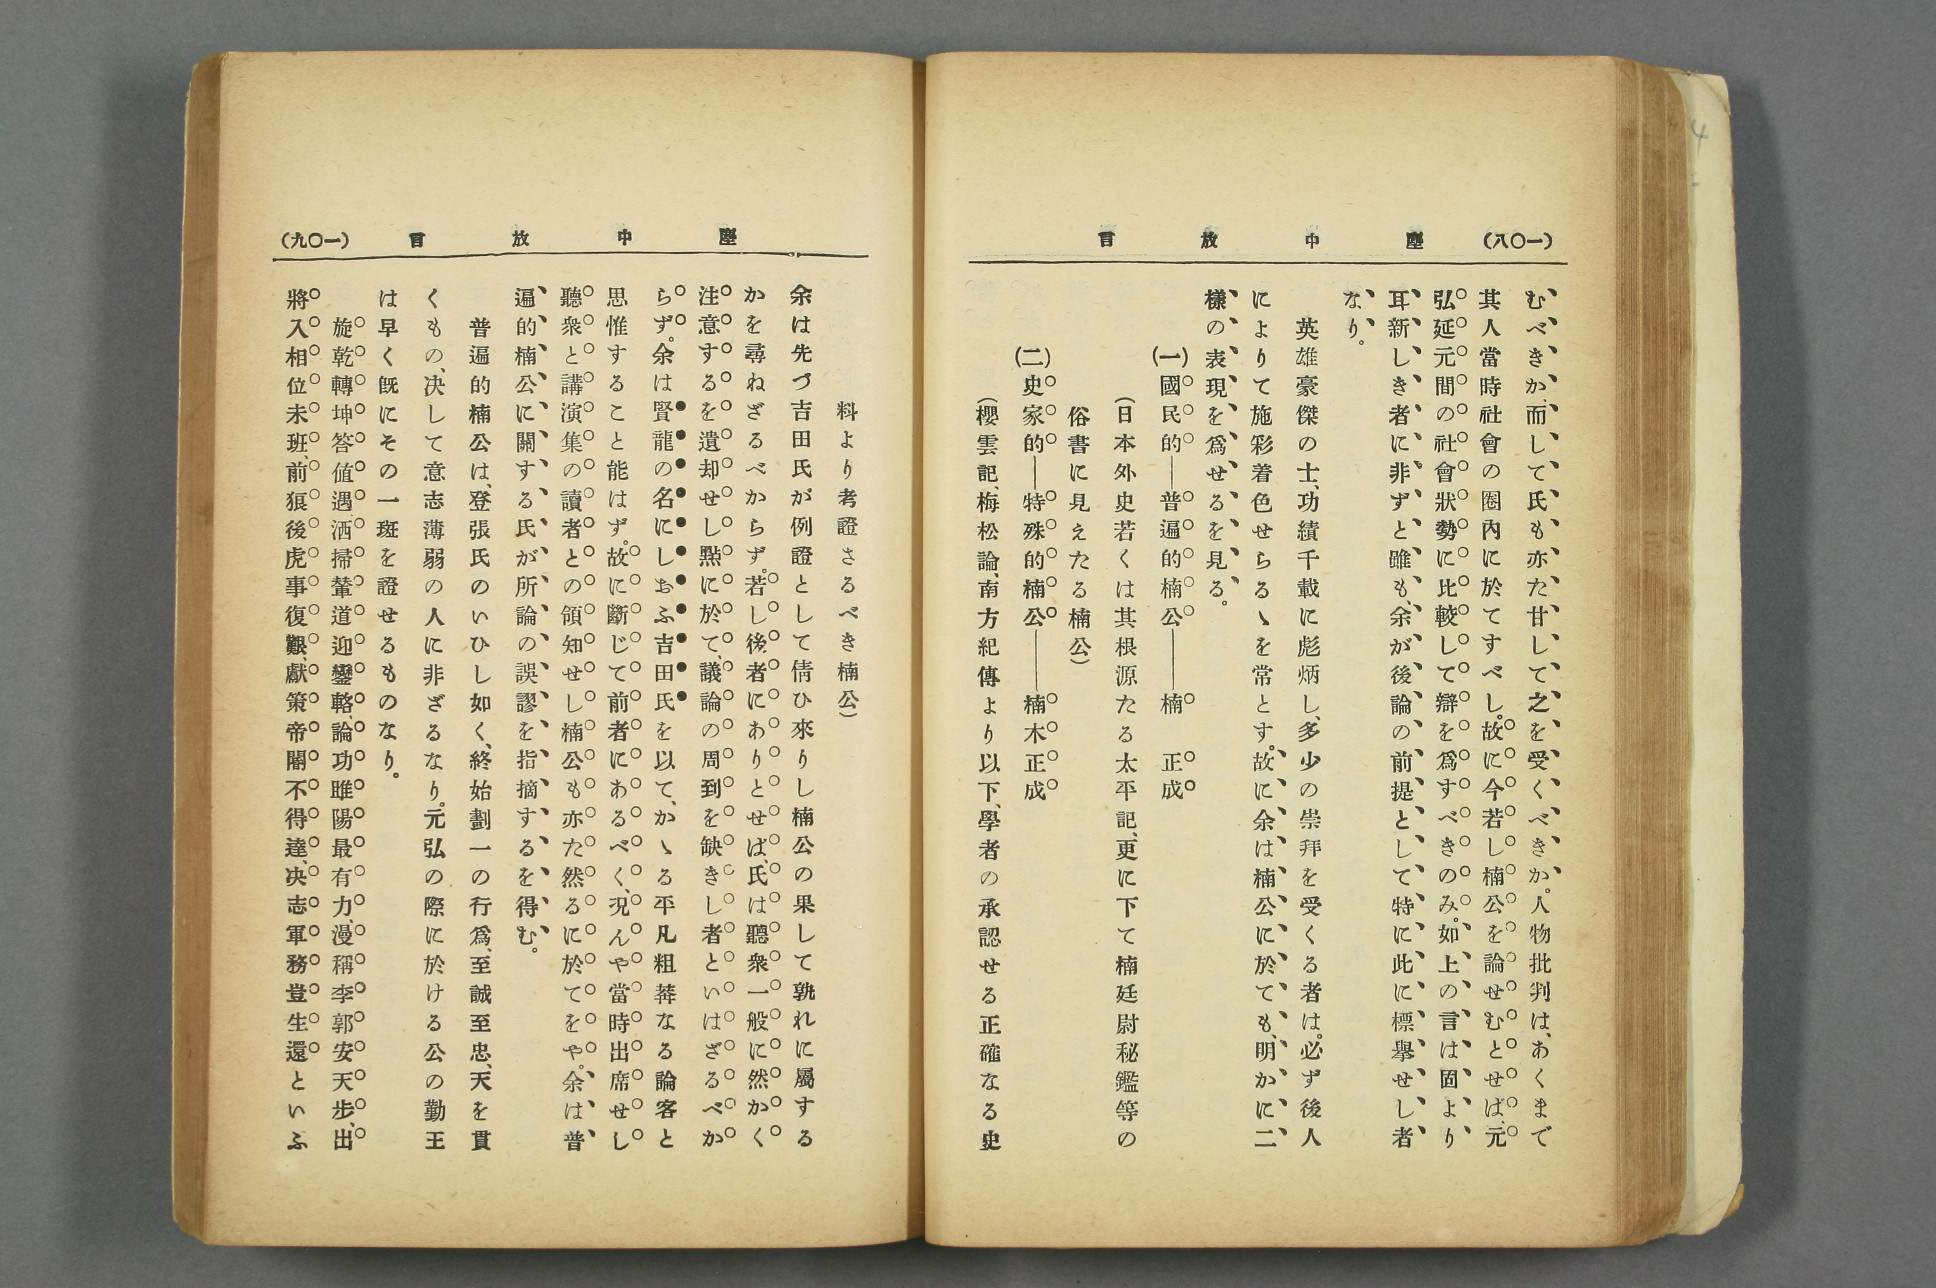 (一〇八)　塵中放言
むべきか、而して氏も亦た甘して之を受くべきか。人物批判は、あくまで
其人當時社會の圈內に於てすべし。故に今若し楠公を論せむとせば、元
弘延元間の社會狀勢に比較して辯を爲すべきのみ。如上の言は固より
耳新しき者に非ずと雖も、余が後論の前提として特に此に標擧せし者
なり。
英雄豪傑の士、功績千載に彪炳し、多少の崇拜を受くる者は。必ず後人
によりて施彩着色せらるゝを常とす。故に余は楠公に於ても、明かに二
樣の表現を爲せるを見る。
(一)國民的――普遍的楠公――楠　正成
(日本外史若くは其根源たる太平記、更に下て楠廷尉秘鑑等の
俗書に見えたる楠公)
(二)史家的――特殊的楠公――楠木正成
(櫻雲記、梅松論、南方紀傳より以下、學者の承認せる正確なる史
(一〇九)　塵中放言
料より考證さるべき楠公)
余は先づ吉田氏が例證として倩ひ來りし楠公の果して孰れに屬する
かを尋ねざるべからず。若し後者にありとせば、氏は聽衆一般に然かく
注意するを遺却せし點に於て、議論の周到を缺きし者といはざるべか
らず。余は賢龍の名にしおふ吉田氏を以て、かゝる平凡粗莾なる論客と
思惟すること能はず。故に斷じて前者にあるべく、况んや當時出席せし
聽衆と講演集の讀者との領知せし楠公も亦た然るに於てをや。余は普
遍的楠公に關する氏が所論の誤謬を指摘するを得む。
普遍的楠公は、登張氏のいひし如く、終始劃一の行爲、至誠至忠、天を貫
くもの、决して意志薄弱の人に非ざるなり。元弘の際に於ける公の勤王
は早く旣にその一斑を證せるものなり。
旋乾轉坤答値遇、洒掃輦道迎鑾輅、論功睢陽最有力、漫稱李郭安天步、出
將入相位未班、前狼後虎事復艱、獻策帝閽不得達、决志軍務豈生還といふ